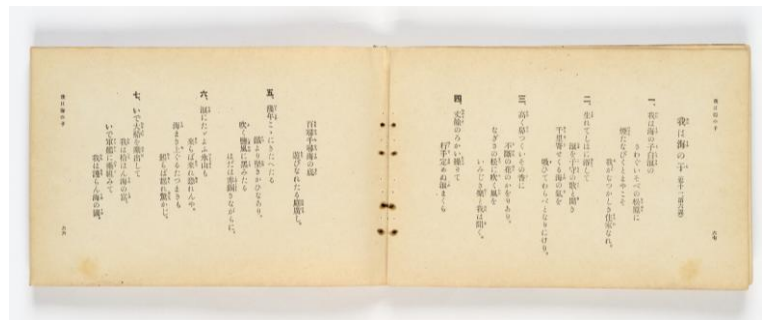 我は海の子
一、我は海の子白浪の
さわぐいそべの松原に
煙たなびくとまやこそ
我がなつかしき住家なれ。
二、生れてしほに浴して
浪を子守の歌と聞き
千里寄せくる海の氣を
吸ひてわらべとなりにけり。
三、高く鼻つくいその香に
不斷の花のかをりあり。
なぎさの松に吹く風を
いみじき樂と我は聞く。
四、丈餘のろかい操りて
行手定めぬ浪まくら
百尋千尋海の底
遊びなれたる庭廣し。
五、幾年こゝにきたへたる
鐵より堅きかひなあり。
吹く鹽風に黑みたる
はだは赤銅さながらに。
六、浪にたゞよふ氷山も
來らば來れ恐れんや。
海まき上ぐるたつまきも
起らば起れ驚かじ。
七、いで大船を乘出して
我は拾はん海の富。
いで軍艦に乘組みて
我は護らん海の國。